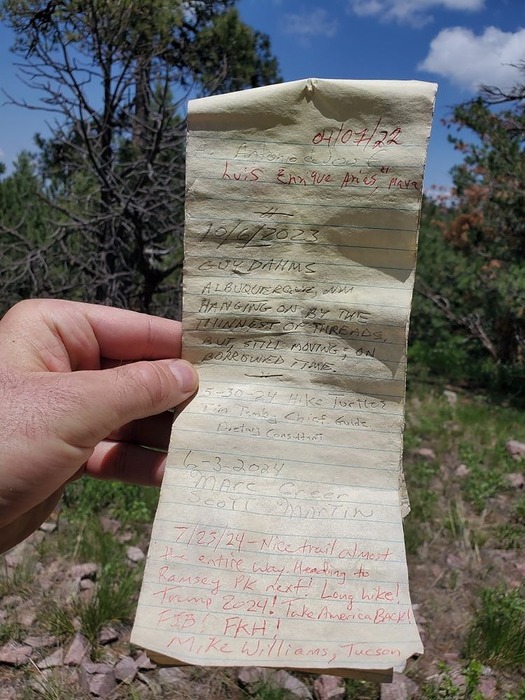 04/07/22
Antonio & Jose
Luis Enrique Arias
10/6/2023
GUY DAHMS
ALBUQUERQUE, NM
HANGING ON BY THE
THINNEST OF THREADS,
BUT, STILL MOVING; ON
BORROWED TIME.
5-30-24 Mike Turtles
Chief Guide
Dietary Consultant
6-3-2024
Marc Greer
Scott Martin
7/23/24 - Nice trail almost
the entire way. Heading to
Ramsey PK next! Long hike!
Trump 2024! Take America Back!
FJB! FKH!
Mike Williams, Tucson